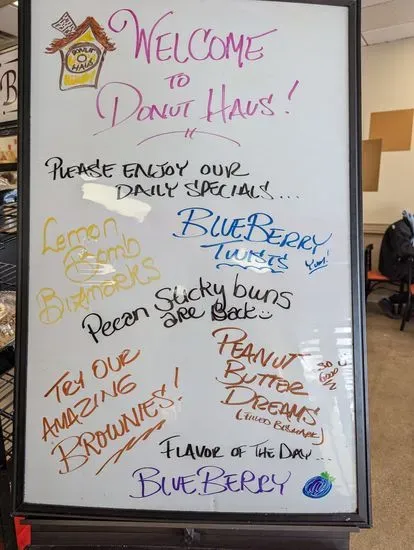 DONUT
HAUS
WELCOME
TO
DONUT HAUS!
PLEASE ENJOY OUR
DAILY SPECIALS...
Lemon
Bomb
Bizmarks
BLUEBERRY
TWISTS
Yum!
Pecan Sticky buns
are Back
TRY OUR
AMAZING
BROWNIES!
PEANUT
BUTTER
DREAMS
(FILLED BISMARK)
FLAVOR OF THE DAY...
BLUEBERRY
B